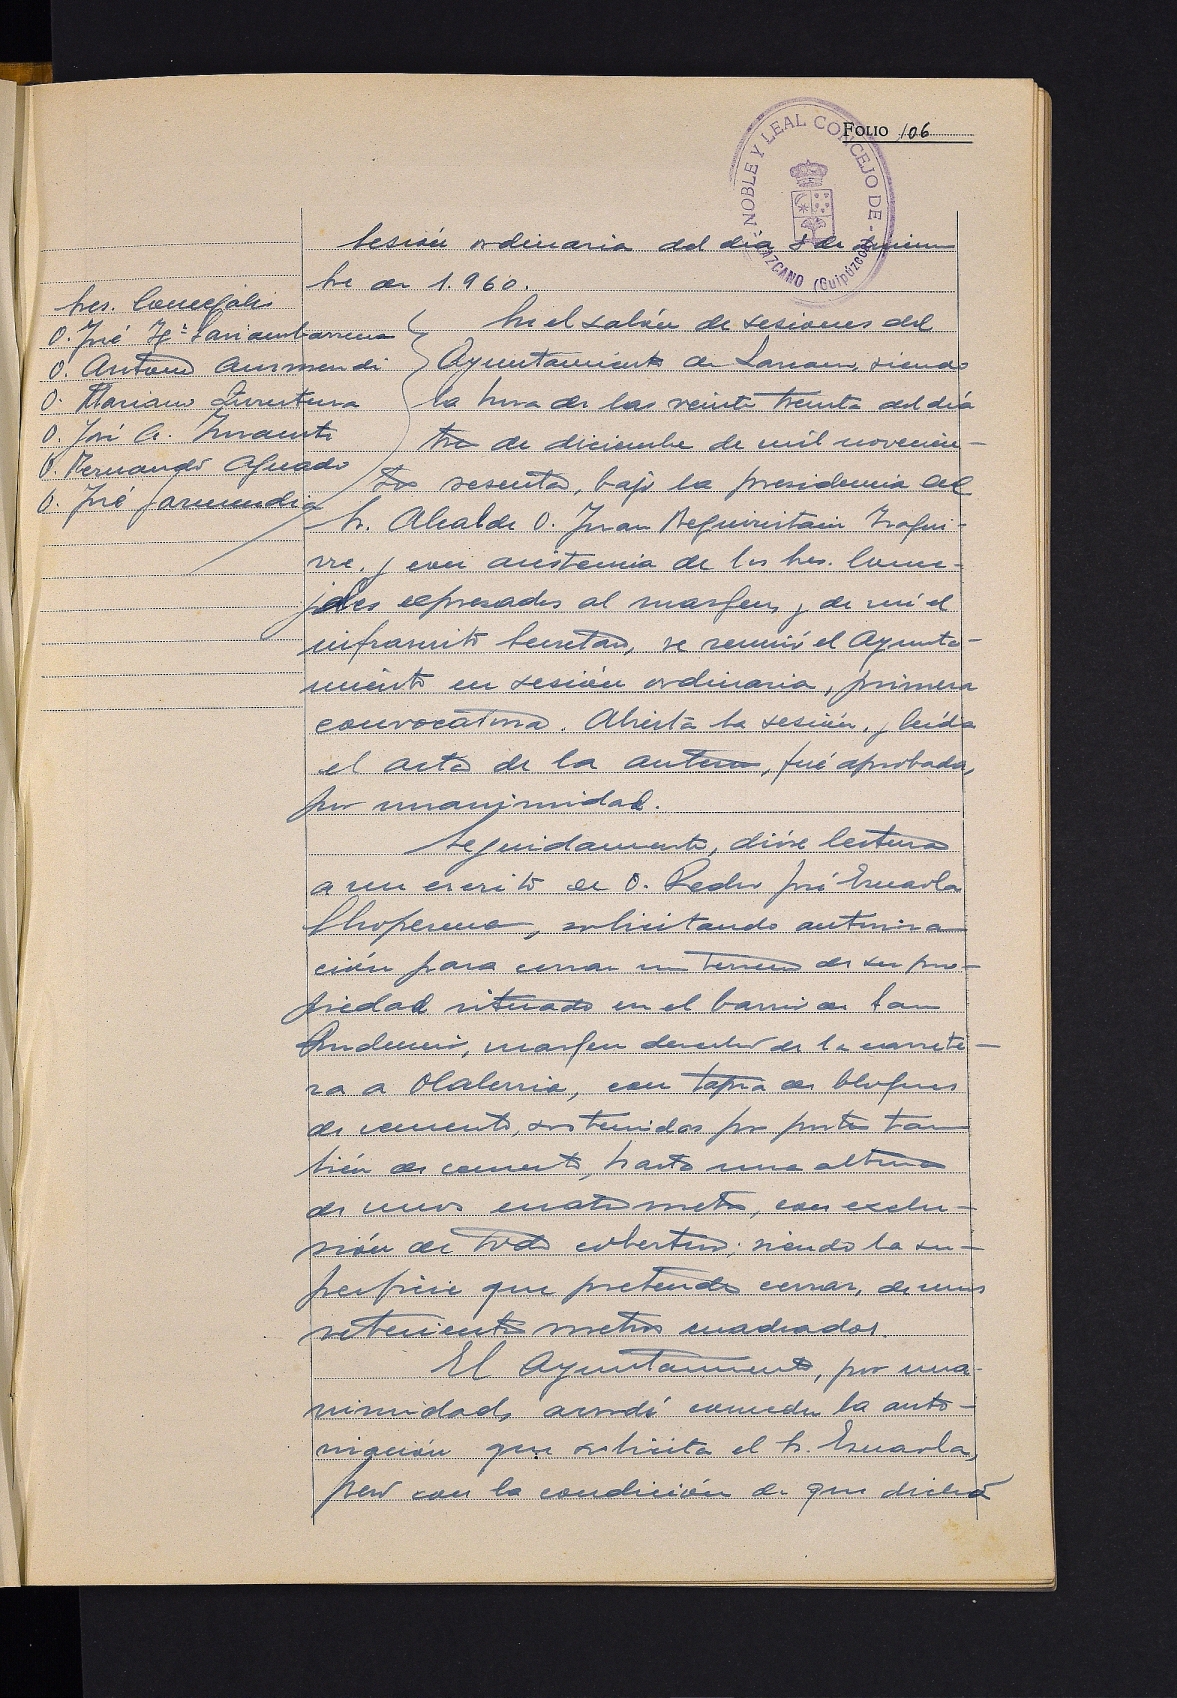 FOLIO 106
NOBLE Y LEAL CONCEJO DE - LAZCANO (Guipúzcoa) -
Sesión ordinaria del día 3 de diciem
bre de 1.960.
Sres. Concejales
D. José Mª
D. Antonio Aurmendi
D. Mariano
D. José A.
D. Fernando Aguado
D. José Garmendia
En el salón de sesiones del
Ayuntamiento de Lazcano, siendo
la hora de las veinte treinta del día
tres de diciembre de mil novecien-
tos sesenta, bajo la presidencia del
Sr. Alcalde D. Juan Beguiristain
y con asistencia de los Sres. Conce-
jales expresados al margen, y de mí el
infrascrito Secretario, se reunió el Ayunta-
miento en sesión ordinaria, primera
convocatoria. Abierta la sesión, y leída
el acta de la anterior, fué aprobada,
por unanimidad.
Seguidamente, dióse lectura
a un escrito de D. Pedro José
solicitando autoriza
ción para cerrar un terreno de su pro-
piedad situado en el barrio de San
margen derecho de la carrete-
ra a Olaberria, con tapia de bloques
de cemento, sostenidos por postes tam
bién de cemento, hasta una altura
de unos cuatro metros, con exclu-
sión de todo cobertizo; siendo la su-
perficie que pretende cerrar, de unos
setecientos metros cuadrados.
El Ayuntamiento, por una-
nimidad, acordó conceder la auto-
rización que solicita el Sr.
pero con la condición de que dicha